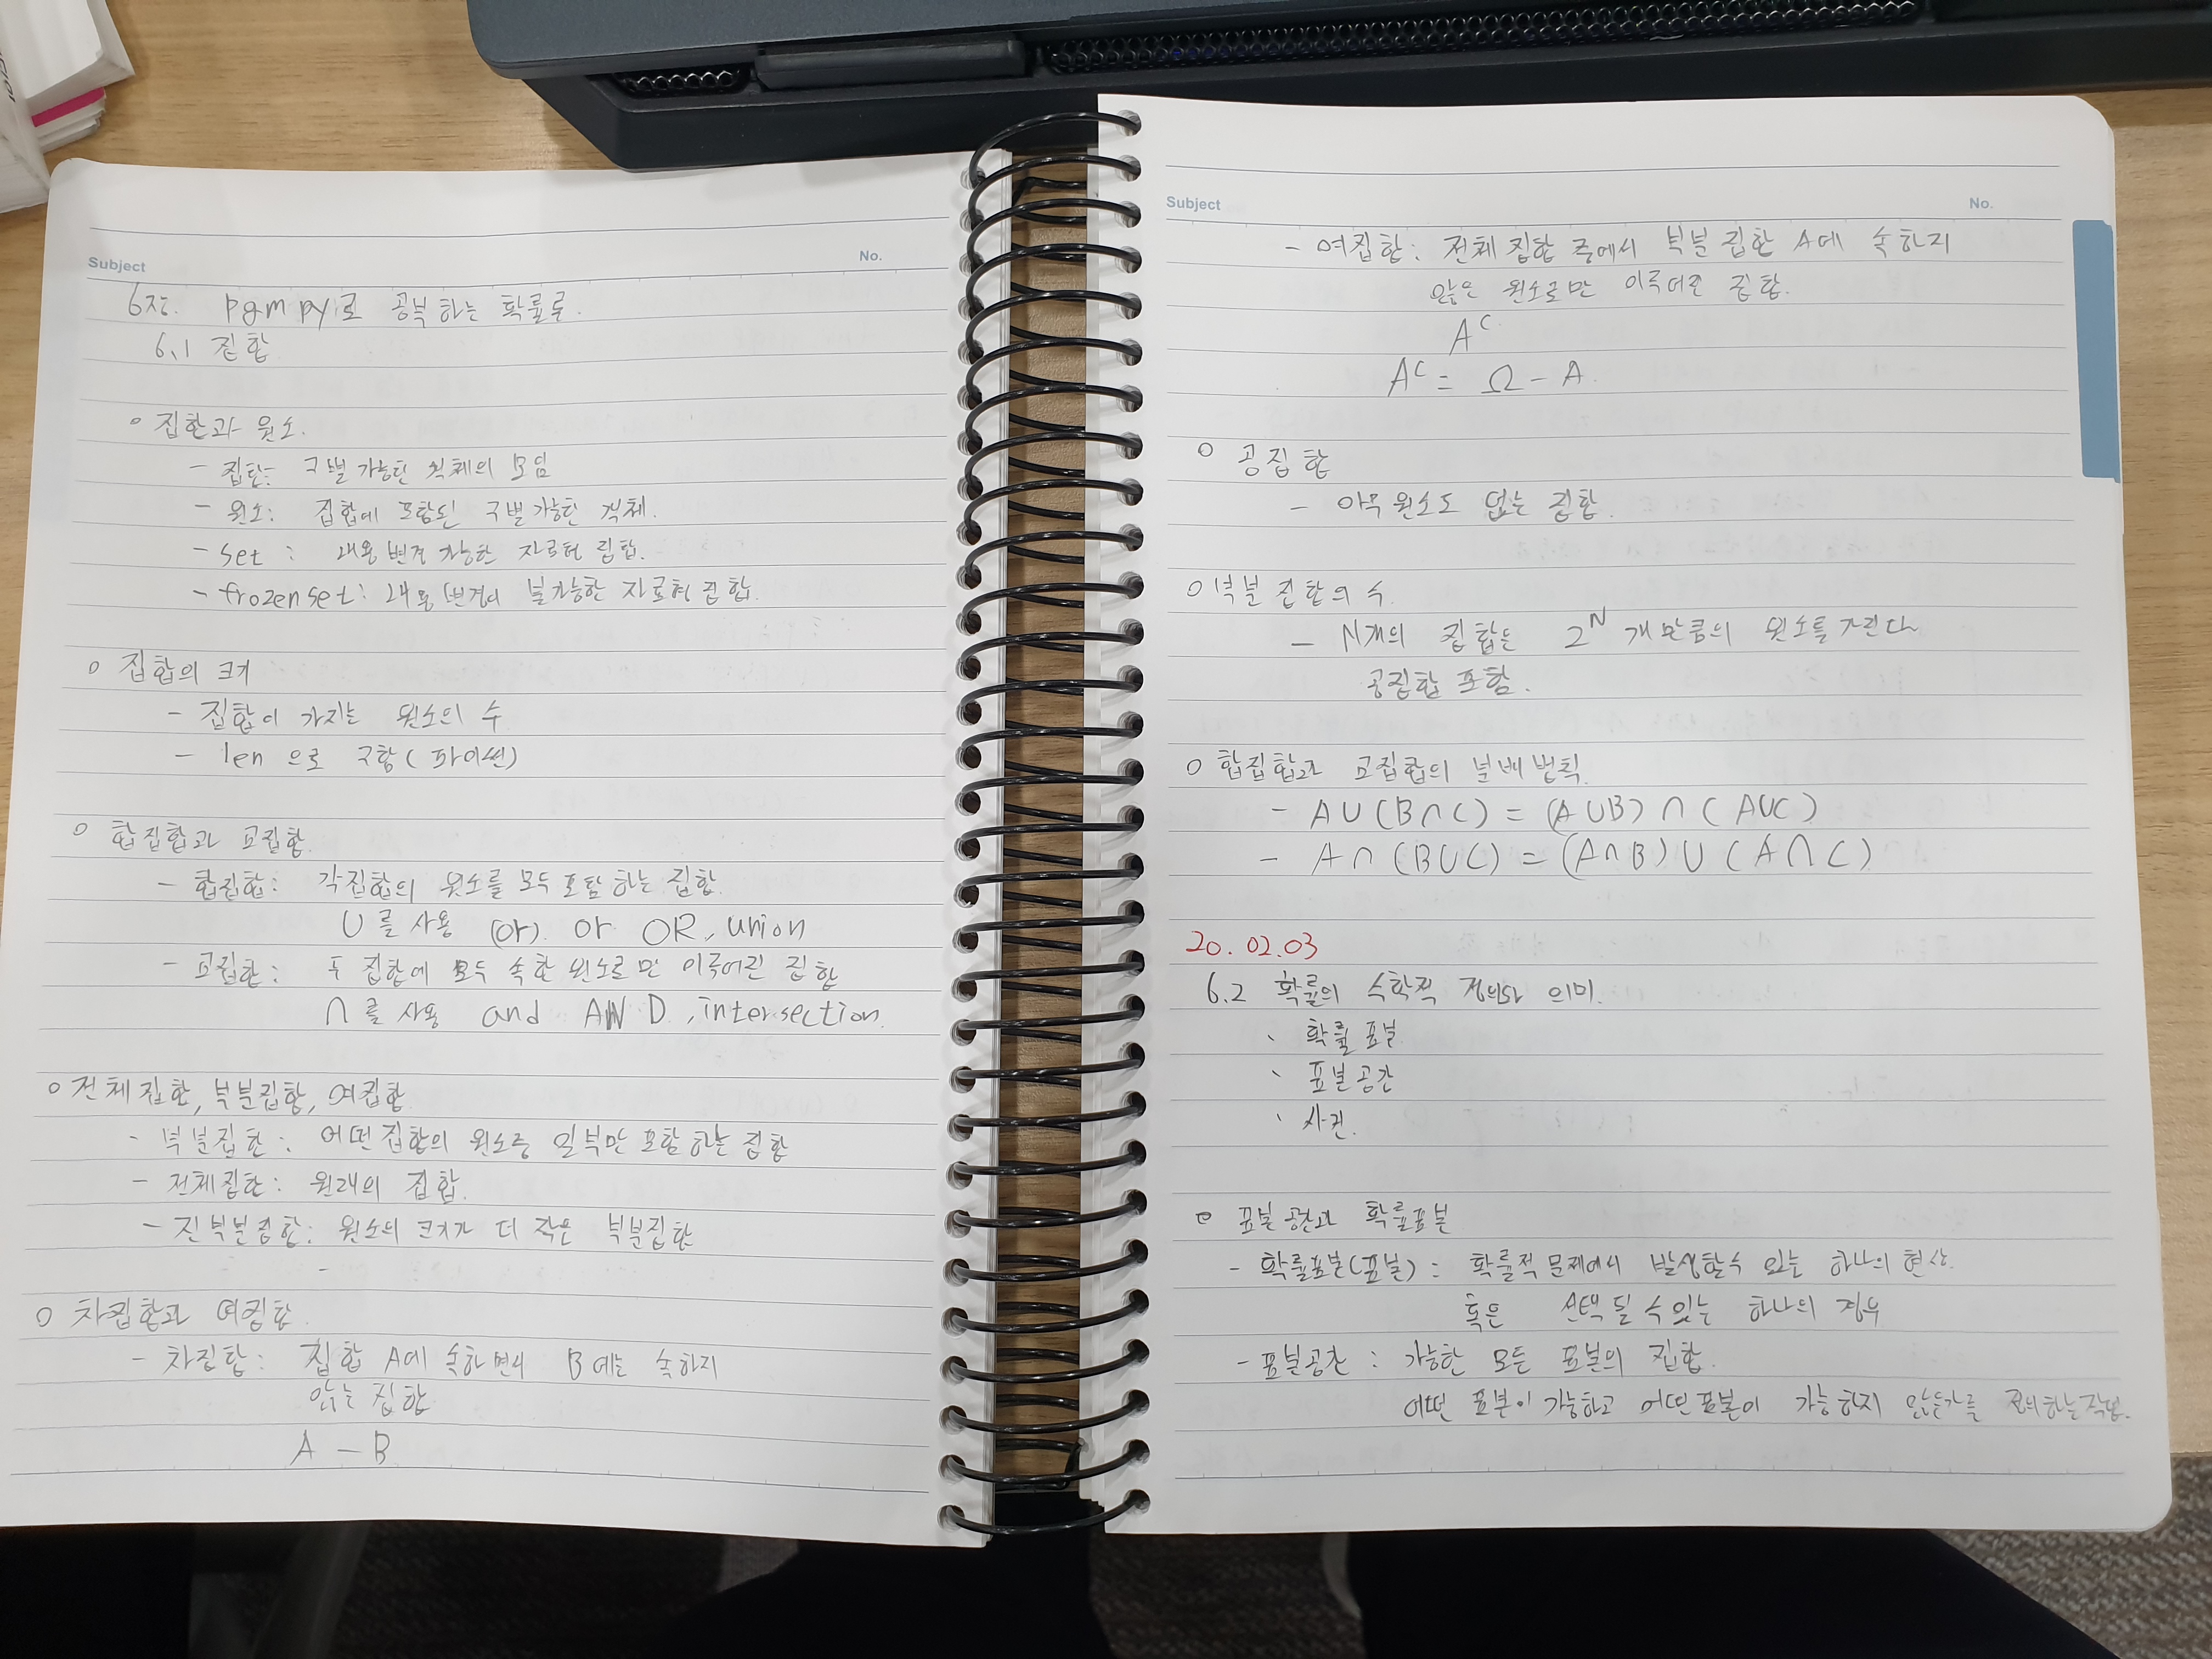 Subject
No.
6장. pgmpy로 공부하는 확률론.
6.1 집합
○ 집합과 원소.
- 집합: 구별 가능한 객체의 모임
- 원소: 집합에 포함된 구별 가능한 객체.
- set : 내용 변경 가능한 자료형 집합.
- frozenset: 내용 변경이 불가능한 자료형 집합.
○ 집합의 크기
- 집합이 가지는 원소의 수
- len 으로 구함 (파이썬)
○ 합집합과 교집합.
- 합집합: 각 집합의 원소를 모두 포함하는 집합.
∪를 사용 (or). or OR, union
- 교집합: 두 집합에 모두 속한 원소로만 이루어진 집합
∩를 사용 and AND, intersection.
○ 전체집합, 부분집합, 여집합
- 부분집합: 어떤 집합의 원소중 일부만 포함하는 집합
- 전체집합: 원래의 집합.
- 진부분집합: 원소의 크기가 더 작은 부분집합
○ 차집합과 여집합.
- 차집합: 집합 A에 속하면서 B에는 속하지
않는 집합
A - B
Subject
No.
- 여집합: 전체 집합 중에서 부분 집합 A에 속하지
않은 원소로만 이루어진 집합.
Aᶜ
Aᶜ = Ω - A.
○ 공집합
- 아무 원소도 없는 집합.
○ 부분 집합의 수.
- N개의 집합은 2ᴺ 개 만큼의 원소를 가진다
공집합 포함.
○ 합집합과 교집합의 분배 법칙.
- A∪(B∩C) = (A∪B)∩(A∪C)
- A∩(B∪C) = (A∩B)∪(A∩C)
20. 02. 03
6.2 확률의 수학적 정의와 의미.
· 확률 표본
· 표본 공간
· 사건.
○ 표본 공간과 확률표본
- 확률표본(표본) : 확률적 문제에서 발생할수 있는 하나의 현상.
혹은 선택 될 수 있는 하나의 경우
- 표본공간 : 가능한 모든 표본의 집합.
어떤 표본이 가능하고 어떤표본이 가능하지 않는가를 정의하는 작업.